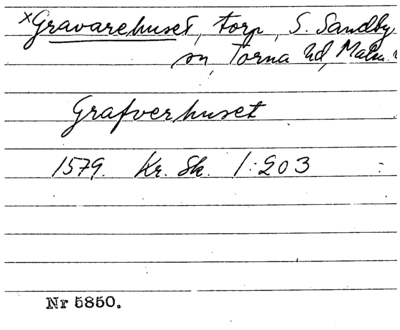 ×Gravarehuset, torp, S. Sandby
sn, Torna hd, Malm.
Grafverhuset
1579. Kr. Sk. 1:203
Nr 5850.